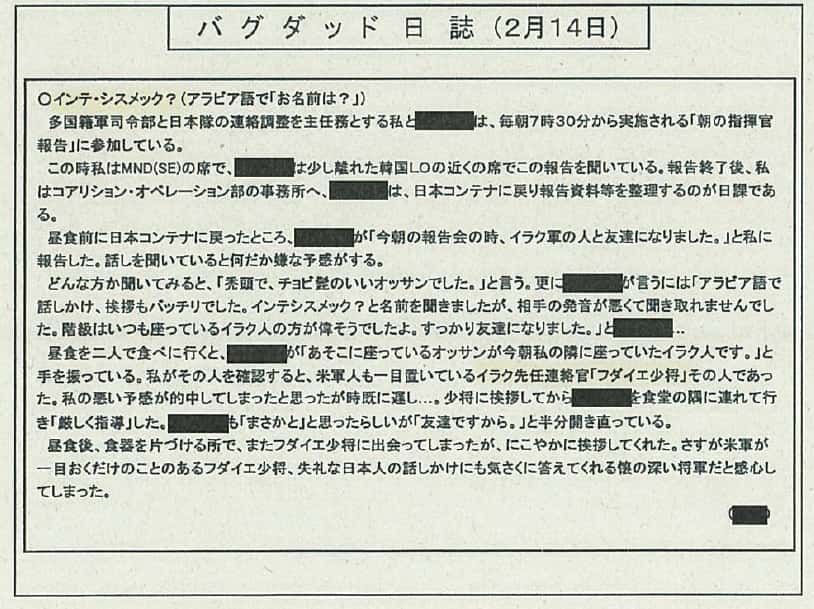 バグダッド日誌(2月14日)
○インテ・シスメック?(アラビア語で「お名前は?」)
多国籍軍司令部と日本隊の連絡調整を主任務とする私と は、毎朝7時30分から実施される「朝の指揮官
報告」に参加している。
この時私はMND(SE)の席で、 は少し離れた韓国LOの近くの席でこの報告を聞いている。報告終了後、私
はコアリション・オペレーション部の事務所へ、 は、日本コンテナに戻り報告資料等を整理するのが日課であ
る。
昼食前に日本コンテナに戻ったところ、 が「今朝の報告会の時、イラク軍の人と友達になりました。」と私に
報告した。話しを聞いていると何だか嫌な予感がする。
どんな方か聞いてみると、「禿頭で、チョビ髭のいいオッサンでした。」と言う。更に が言うには「アラビア語で
話しかけ、挨拶もバッチリでした。インテシスメック?と名前を聞きましたが、相手の発音が悪くて聞き取れませんでし
た。階級はいつも座っているイラク人の方が偉そうでしたよ。すっかり友達になりました。」と …
昼食を二人で食べに行くと、 が「あそこに座っているオッサンが今朝私の隣に座っていたイラク人です。」と
手を振っている。私がその人を確認すると、米軍人も一目置いているイラク先任連絡官「フダイエ少将」その人であっ
た。私の悪い予感が的中してしまったと思ったが時既に遅し…。少将に挨拶してから を食堂の隅に連れて行
き「厳しく指導」した。 も「まさかと」と思ったらしいが「友達ですから。」と半分開き直っている。
昼食後、食器を片づける所で、またフダイエ少将に出会ってしまったが、にこやかに挨拶してくれた。さすが米軍が
一目おくだけのことのあるフダイエ少将、失礼な日本人の話しかけにも気さくに答えてくれる懐の深い将軍だと感心し
てしまった。